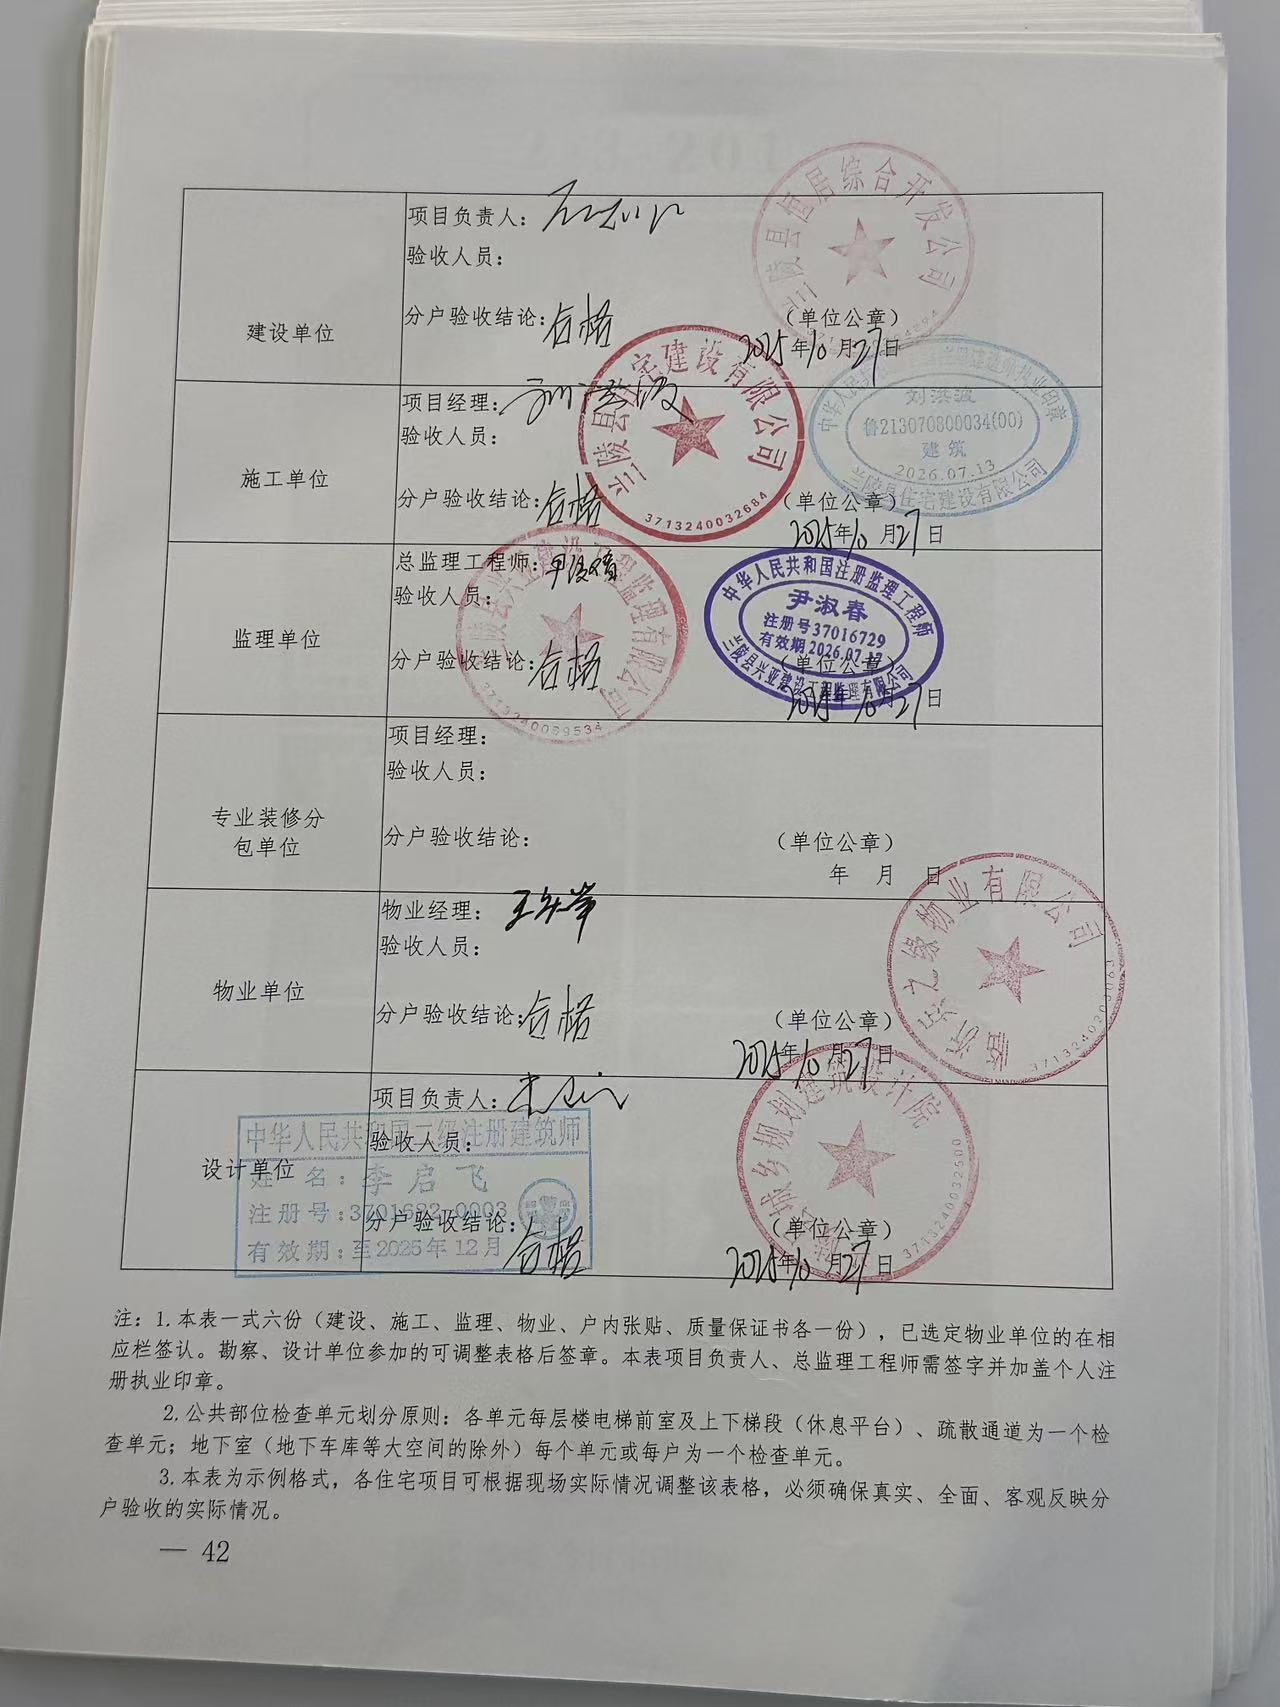 兰陵县恒居综合开发公司
建设单位
项目负责人：
验收人员：
分户验收结论：合格
（单位公章）
2025年10月27日
兰陵县住宅建设有限公司
3713240032684
刘洪波
鲁213070800034(00)
建筑
2026.07.13
兰陵县住宅建设有限公司
施工单位
项目经理：刘洪波
验收人员：
分户验收结论：合格
（单位公章）
2025年10月27日
兰陵县兴亚建设工程监理有限公司
3713240039534
中华人民共和国注册监理工程师
尹淑春
注册号37016729
有效期2026.07.17
兰陵县兴亚建设工程监理有限公司
监理单位
总监理工程师：
验收人员：
分户验收结论：合格
（单位公章）
2025年10月27日
专业装修分
包单位
项目经理：
验收人员：
分户验收结论：
（单位公章）
年 月 日
之缘物业有限公司
3713240203063
物业单位
物业经理：
验收人员：
分户验收结论：合格
（单位公章）
2025年10月27日
城乡规划建筑设计院
3713240032500
中华人民共和国二级注册建筑师
姓 名：李启飞
注册号：3701682-0003
有效期：至2025年12月
设计单位
项目负责人：
验收人员：
分户验收结论：合格
（单位公章）
2025年10月27日
注：1.本表一式六份（建设、施工、监理、物业、户内张贴、质量保证书各一份），已选定物业单位的在相
应栏签认。勘察、设计单位参加的可调整表格后签章。本表项目负责人、总监理工程师需签字并加盖个人注
册执业印章。
2.公共部位检查单元划分原则：各单元每层楼电梯前室及上下梯段（休息平台）、疏散通道为一个检
查单元；地下室（地下车库等大空间的除外）每个单元或每户为一个检查单元。
3.本表为示例格式，各住宅项目可根据现场实际情况调整该表格，必须确保真实、全面、客观反映分
户验收的实际情况。
— 42